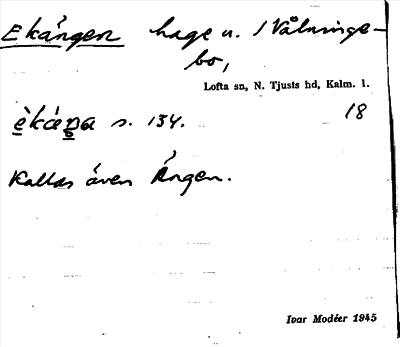 Ekängen hage u. 1 Vålninge-
bo,
Lofta sn, N. Tjusts hd, Kalm. l.
s. 134. 18
Kallas även Ängen.
Ivar Modéer 1945